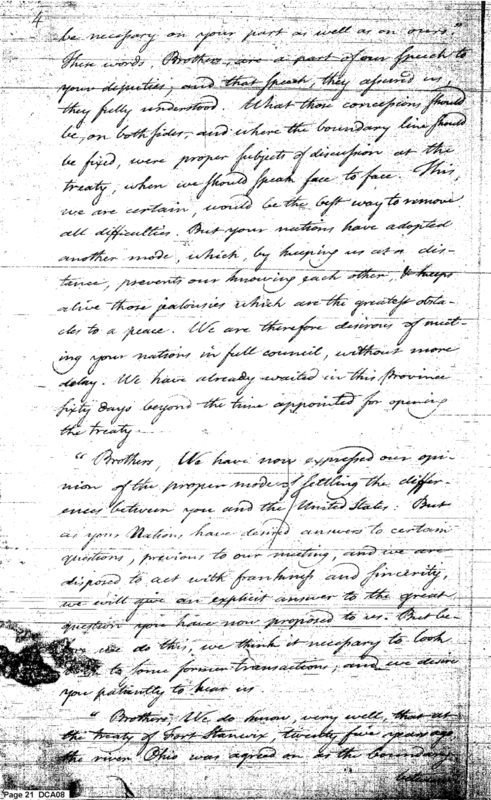 4
be necessary on your part as well as on ours."
These words, Brothers, are a part of our speech to
your deputies; and that speech, they assured us,
they fully understood. What those concessions should
be, on both sides, and where the boundary line should
be fixed, were proper subjects of discussion at the
treaty, when we should speak face to face. This,
we are certain, would be the best way to remove
all difficulties. But your nations have adopted
another mode, which, by keeping us at a dis-
tance, prevents our knowing each other, & keeps
alive those jealousies which are the greatest obsta-
cles to a peace. We are therefore desirous of meet-
ing your nations in full council, without more
delay. We have already waited in this Province
sixty days beyond the time appointed for opening
the treaty.
"Brothers, We have now expressed our opi-
nion of the proper mode of settling the differ-
ences between you and the United States: But
as your Nations have desired answers to certain
questions, previous to our meeting, and we are
disposed to act with frankness and sincerity,
we will give an explicit answer to the great
question you have now proposed to us. But be-
we do this, we think it necessary to look
to some former transactions; and we desire
you patiently to hear us
"Brothers, We do know, very well, that at
the treaty of Fort Stanwix, twenty five years ago,
the river Ohio was agreed on as the boundary
Page 21 DCA08